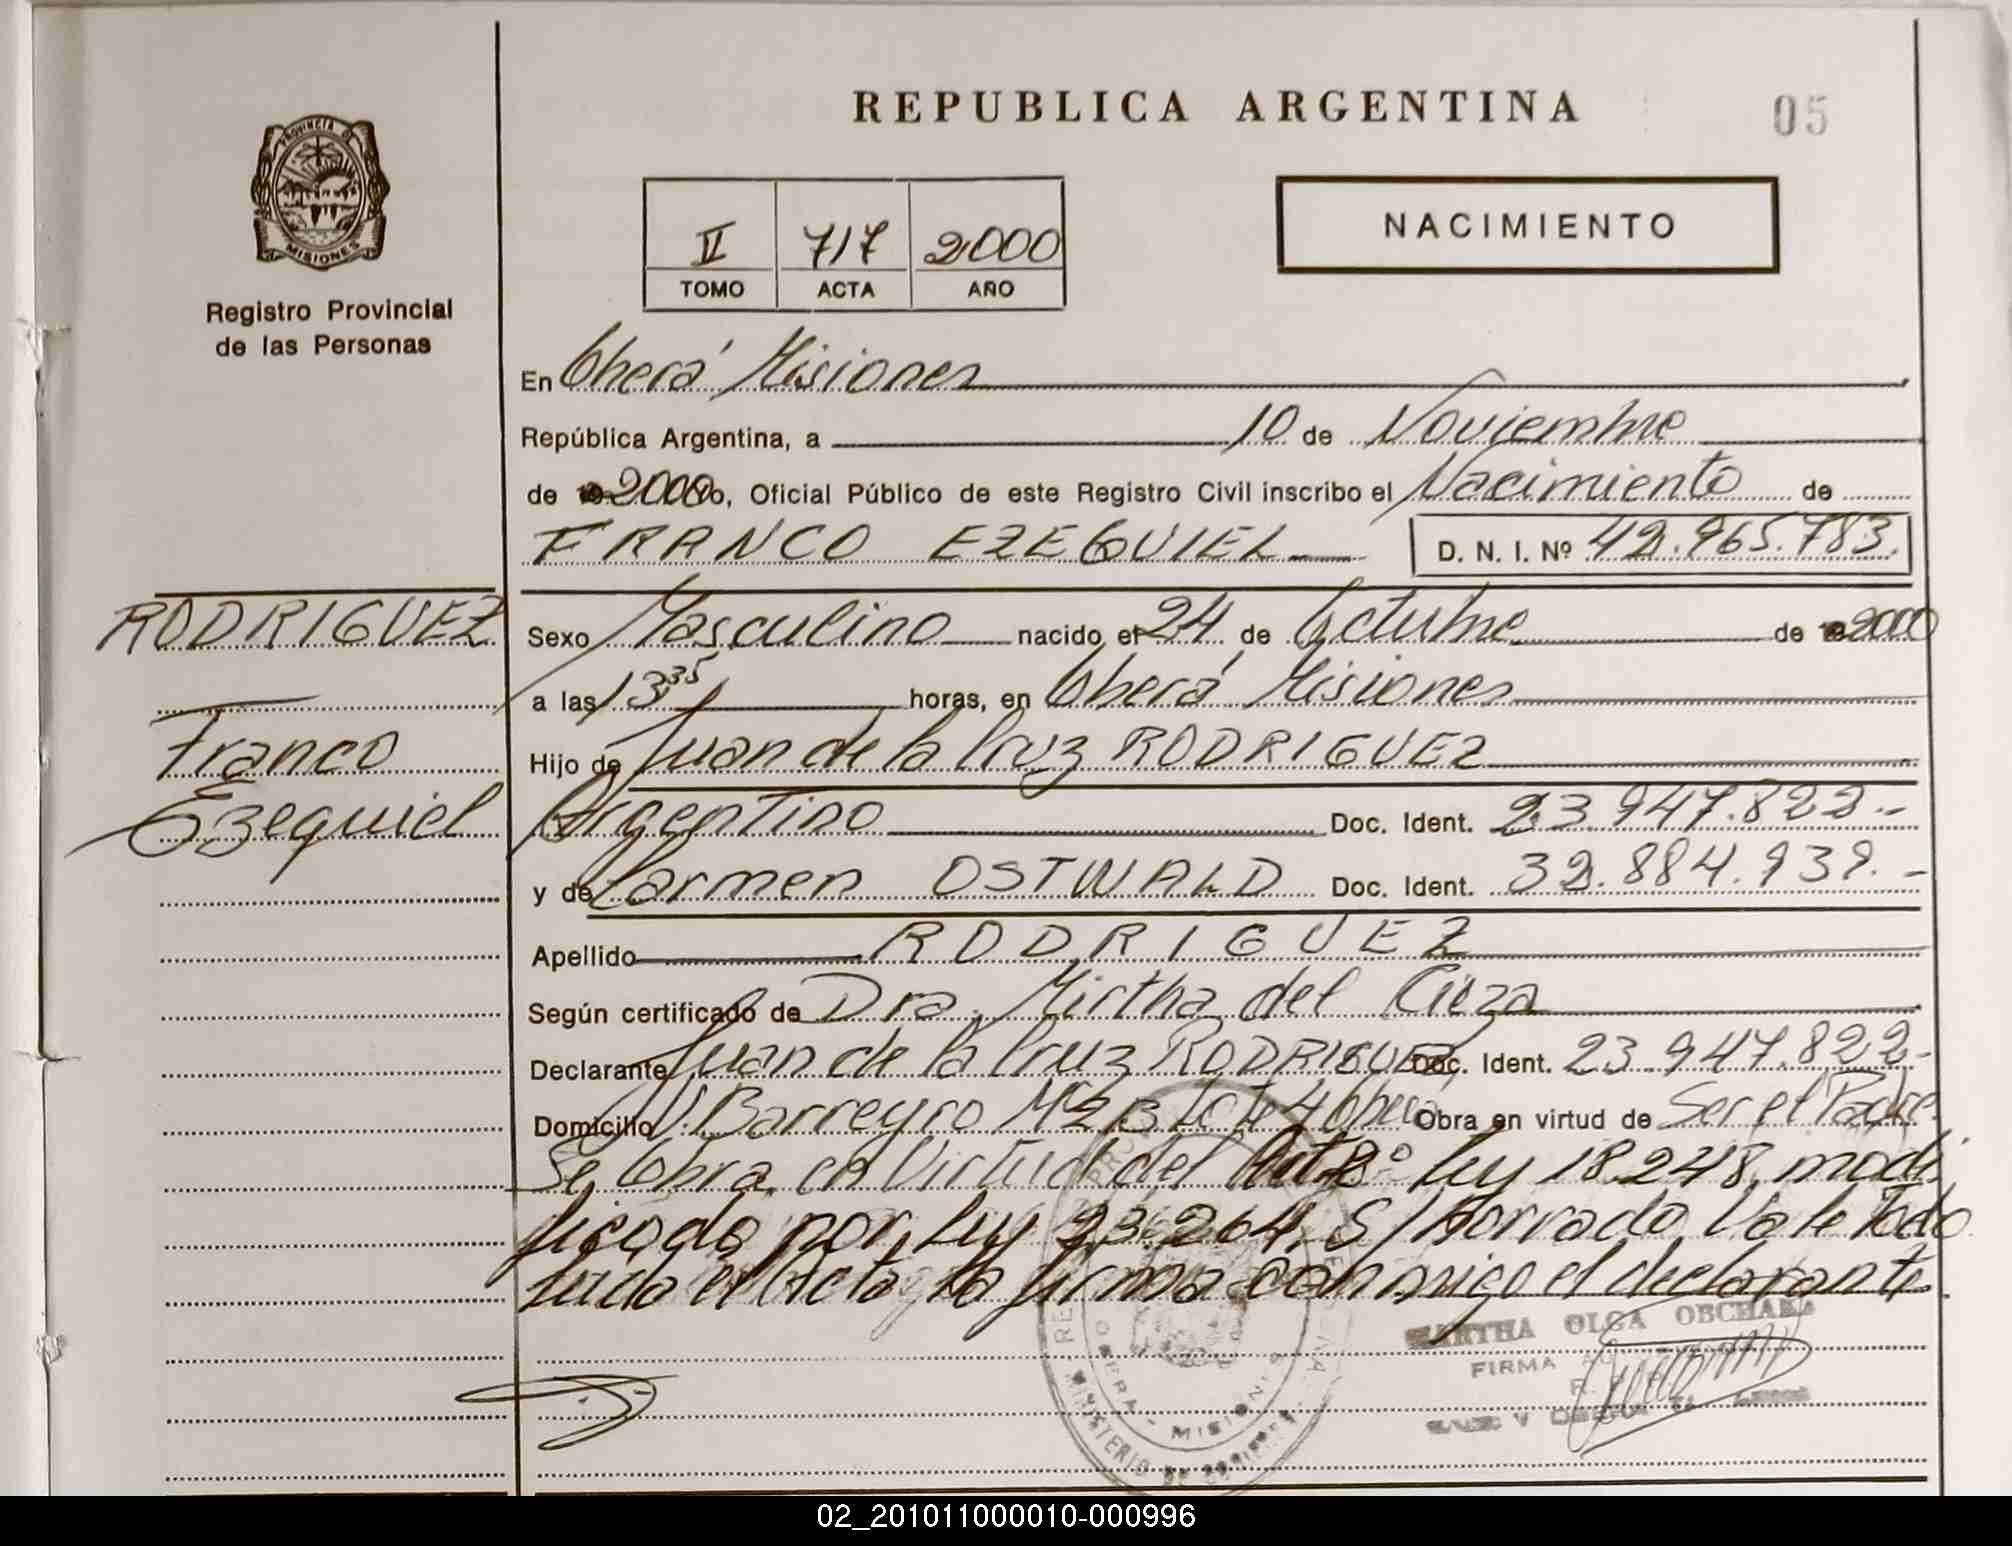 REPUBLICA ARGENTINA
05
PROVINCIA DE MISIONES
Registro Provincial
de las Personas
NACIMIENTO
II 717 2000
TOMO ACTA AÑO
En Oberá Misiones
República Argentina, a 10 de Noviembre
de 2000 yo, Oficial Público de este Registro Civil inscribo el Nacimiento de
FRANCO EZEQUIEL D. N. I. Nº 42.965.783.
RODRIGUEZ
Franco
Ezequiel
Sexo Masculino nacido el 24 de Octubre de 2000
a las 13 35 horas, en Oberá Misiones
Hijo de Juan de la Cruz RODRIGUEZ
Argentino Doc. Ident. 23.947.822.-
y de Carmen OSTWALD Doc. Ident. 32.884.939.-
Apellido RODRIGUEZ
Según certificado de Dra. Mirtha del
Declarante Juan de la Cruz RODRIGUEZ Doc. Ident. 23.947.822-
Domicilio Vº Barreyro Mz B Lote 4 Oberá Obra en virtud de Ser el Padre.
Se Obra en Virtud del ley 18.248 modi
ficada por ley 23.264. S/Borrado Vale
leida el Acta, la firma conmigo el declarante.
MARTHA OLGA OBCHAKA
FIRMA
OBERA - MISIONES
MINISTERIO DE GOBIERNO
02_201011000010-000996